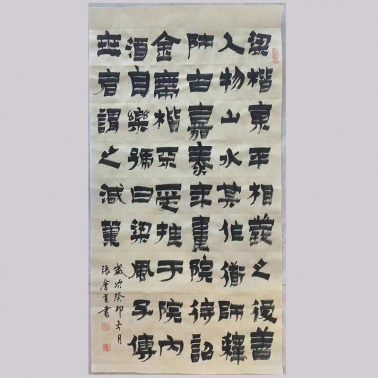 梁楷東平相羲之後善
人物山水其作 師釋
古嘉泰年畫院待詔
金帶楷不受挂于院內
酒自樂號曰梁風子傳
世者謂之減筆
歲次癸卯 月
張 書